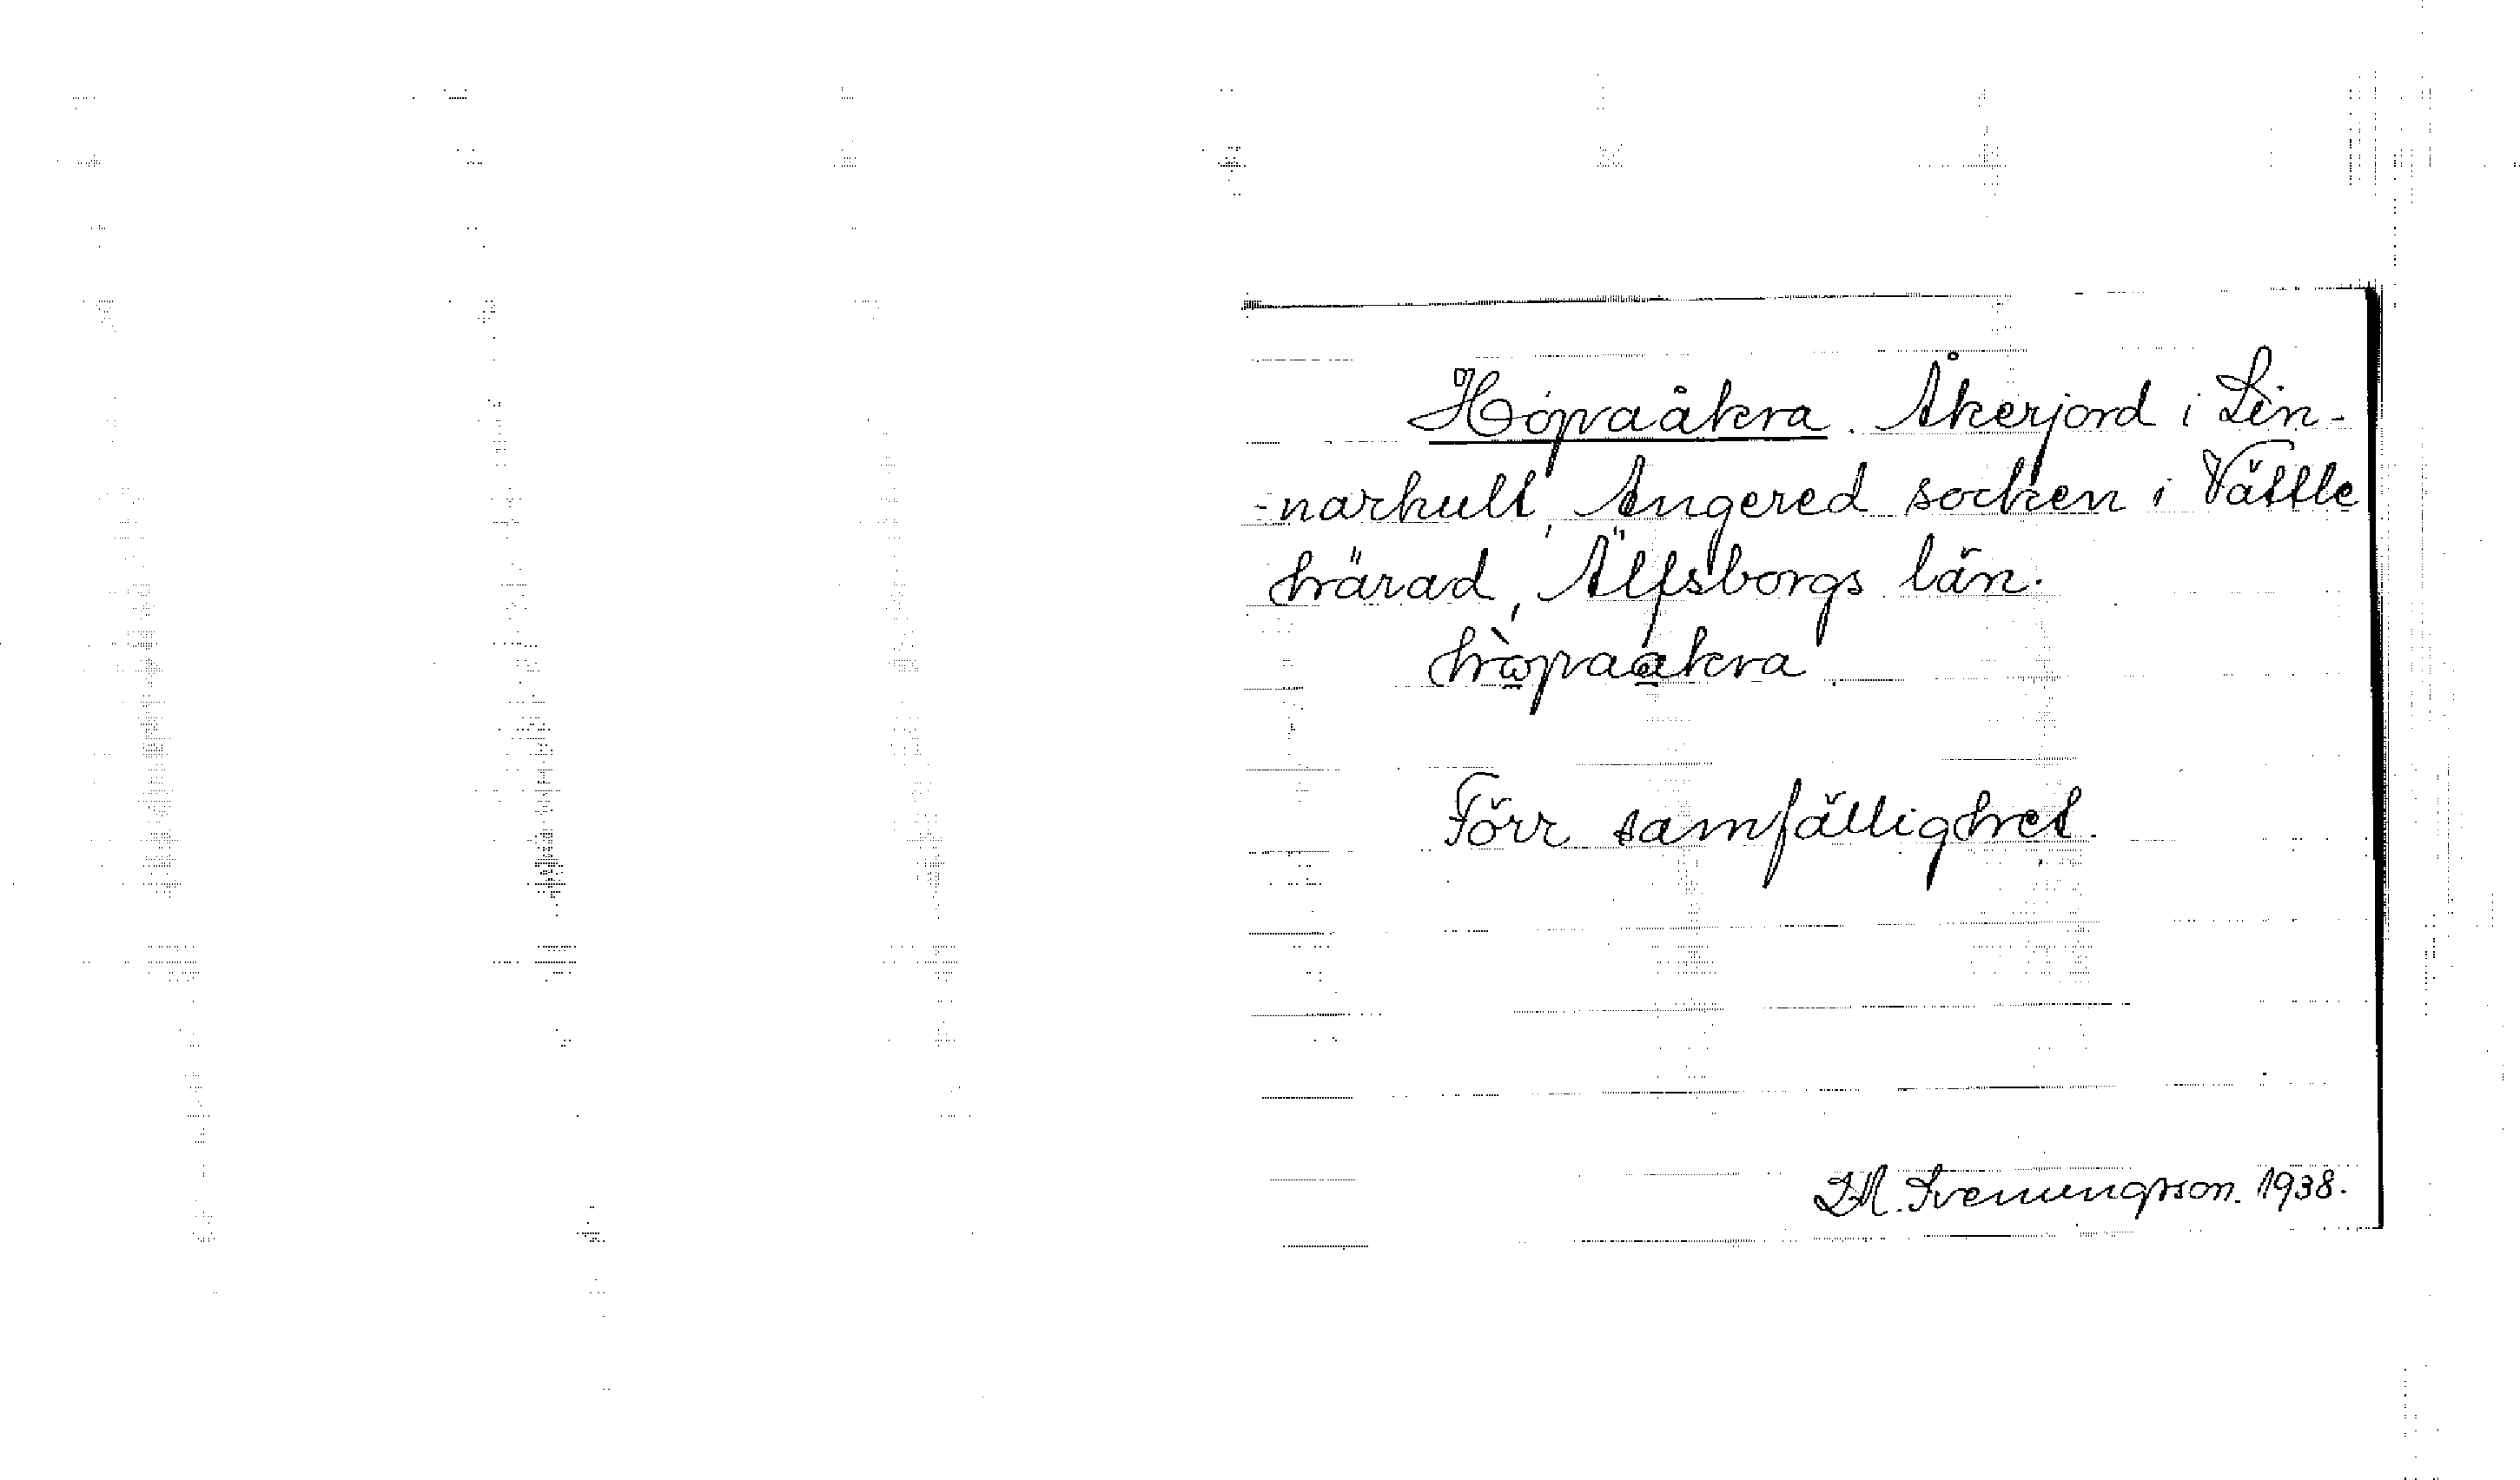 Hópaåkra. Åkerjord i Lin-
-narhult, Angered socken i Vättle
härad, Älfsborgs län.
hòpaåkra
Förr samfällighet.
D.A. Svenungsson. 1938.